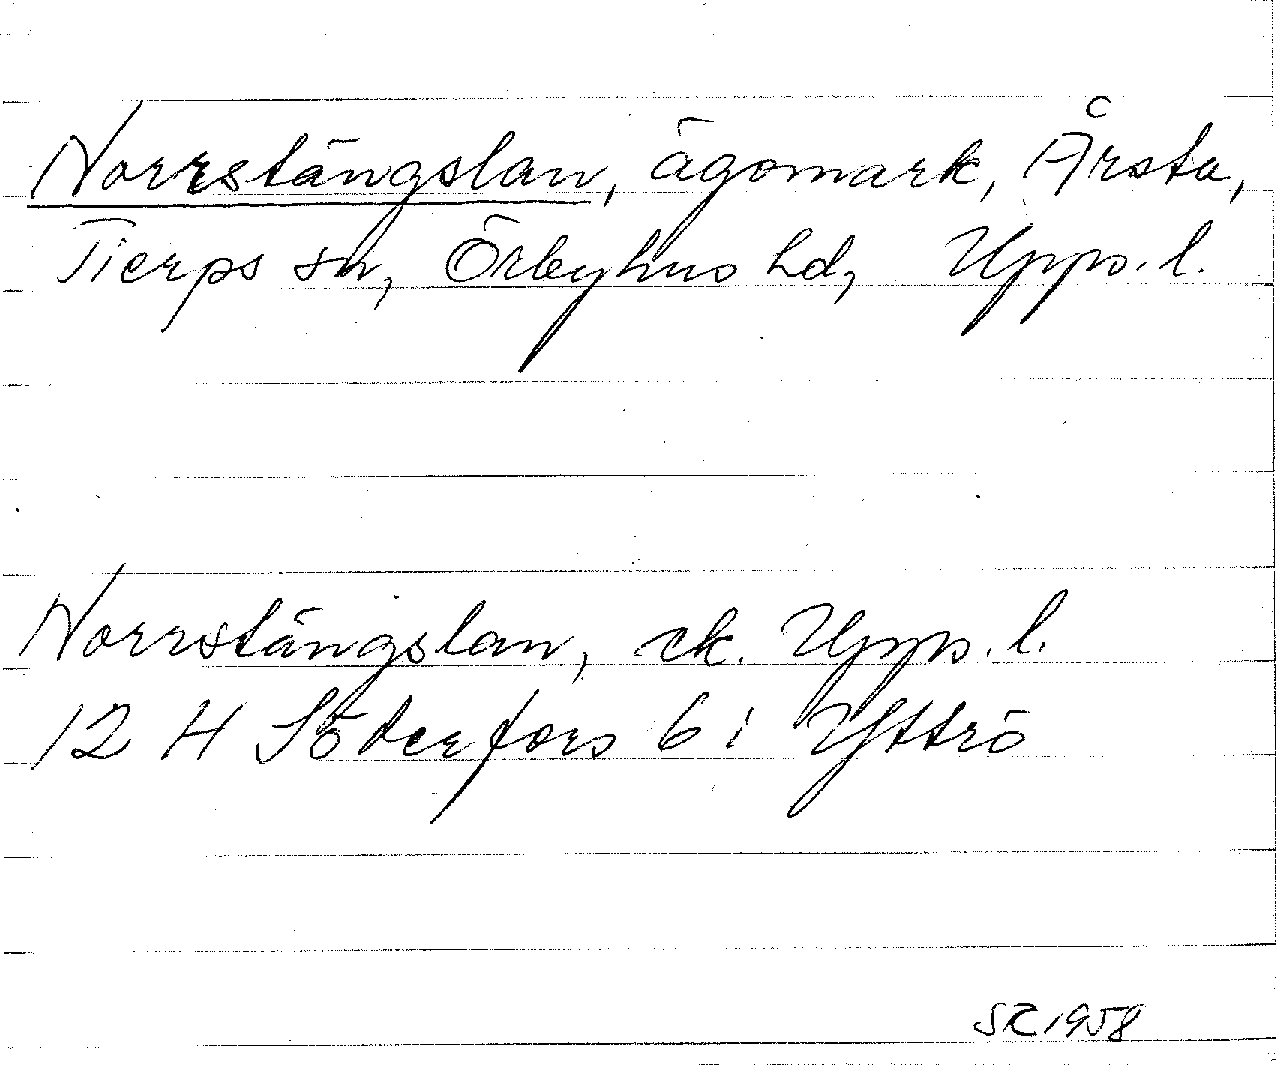 Norrstängslan, ägomark, Årsta,
Tierps sn, Örbyhus hd, Upps. l.
Norrstängslan, ek. Upps. l.
12 H Söderfors 6 i Yttrö
1958